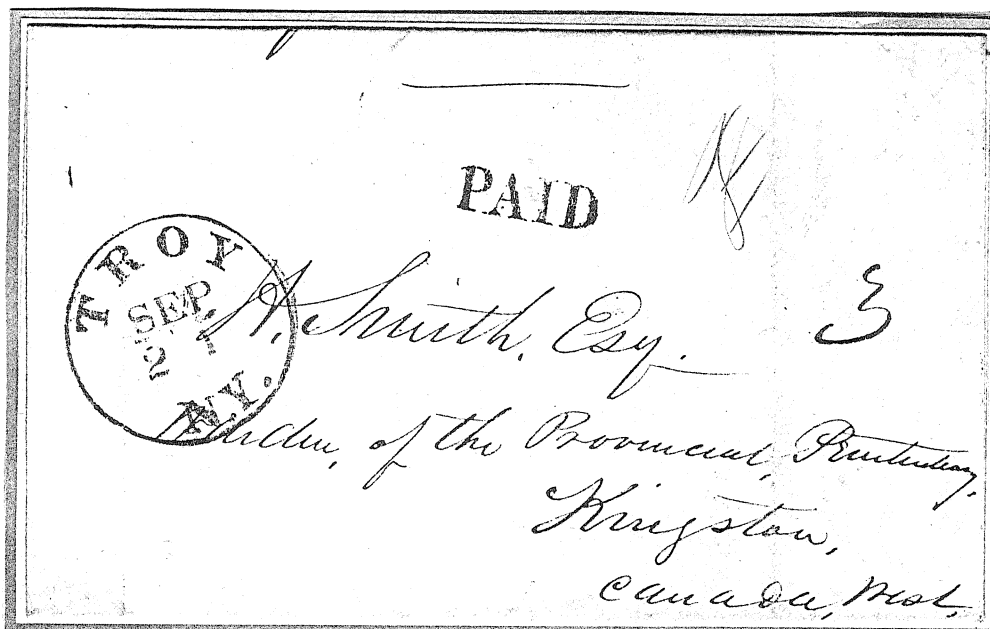 PAID
TROY
SEP
N.Y.
H. Smith, Esq.
Warden, of the Provincial, Penitentiary,
Kingston,
Canada, West,